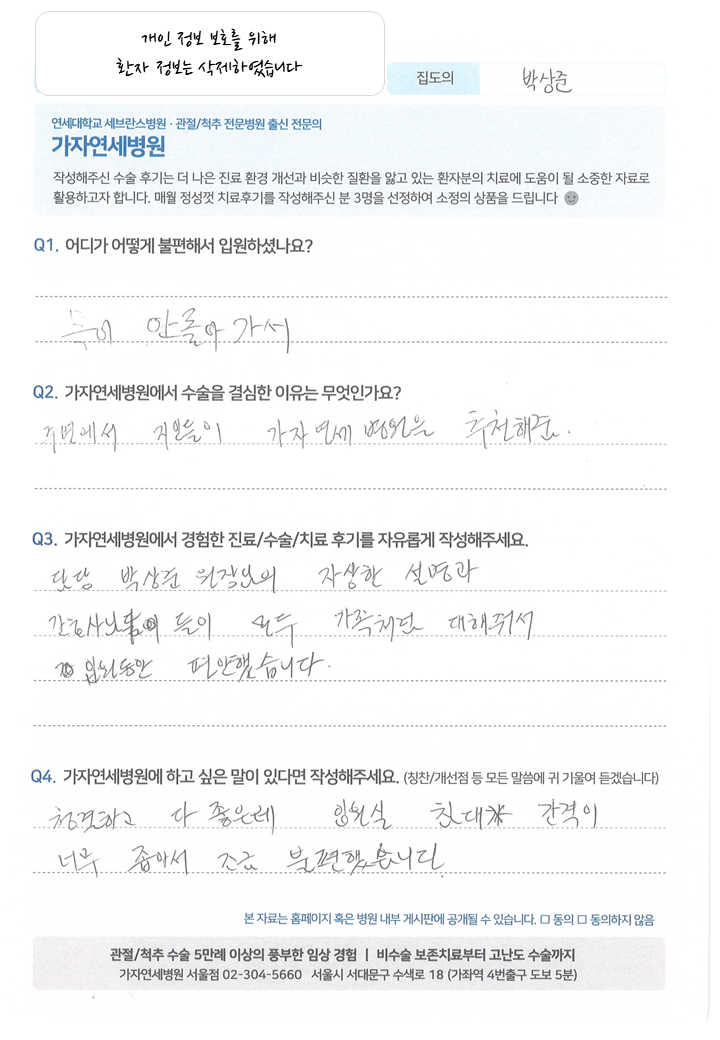 개인 정보 보호를 위해
환자 정보는 삭제하였습니다
집도의 박상준
연세대학교 세브란스병원 · 관절/척추 전문병원 출신 전문의
가자연세병원
작성해주신 수술 후기는 더 나은 진료 환경 개선과 비슷한 질환을 앓고 있는 환자분의 치료에 도움이 될 소중한 자료로
활용하고자 합니다. 매월 정성껏 치료후기를 작성해주신 분 3명을 선정하여 소정의 상품을 드립니다
Q1. 어디가 어떻게 불편해서 입원하셨나요?
목이 안돌아 가서
Q2. 가자연세병원에서 수술을 결심한 이유는 무엇인가요?
주변에서 지인들이 가자연세 병원을 추천해준.
Q3. 가자연세병원에서 경험한 진료/수술/치료 후기를 자유롭게 작성해주세요.
담당 박상준 원장님의 자상한 설명과
간호사님 들이 모두 가족처럼 대해줘서
입원동안 편안했습니다.
Q4. 가자연세병원에 하고 싶은 말이 있다면 작성해주세요. (칭찬/개선점 등 모든 말씀에 귀 기울여 듣겠습니다)
청결하고 다 좋은데 입원실 침대 간격이
너무 좁아서 조금 불편했습니다.
본 자료는 홈페이지 혹은 병원 내부 게시판에 공개될 수 있습니다. □ 동의 □ 동의하지 않음
관절/척추 수술 5만례 이상의 풍부한 임상 경험 | 비수술 보존치료부터 고난도 수술까지
가자연세병원 서울점 02-304-5660 서울시 서대문구 수색로 18 (가좌역 4번출구 도보 5분)